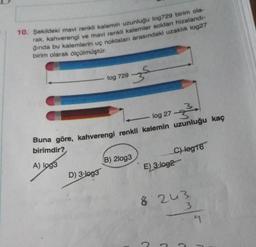 10. Şekildeki mavi renkli kalemin uzunluğu log729 birim ola-
rak, kahverengi ve mavi renkli kalemler soldan hizalandı-
ğında bu kalemlerin uç noktaları arasındaki uzaklık log27
birim olarak ölçülmüştür.
log 729
log 27
3
Buna göre, kahverengi renkli kalemin uzunluğu kaç
birimdir?
A) log3
B) 2log3
C) log16
D) 3·log3
E) 3·log2
8 243
3
9